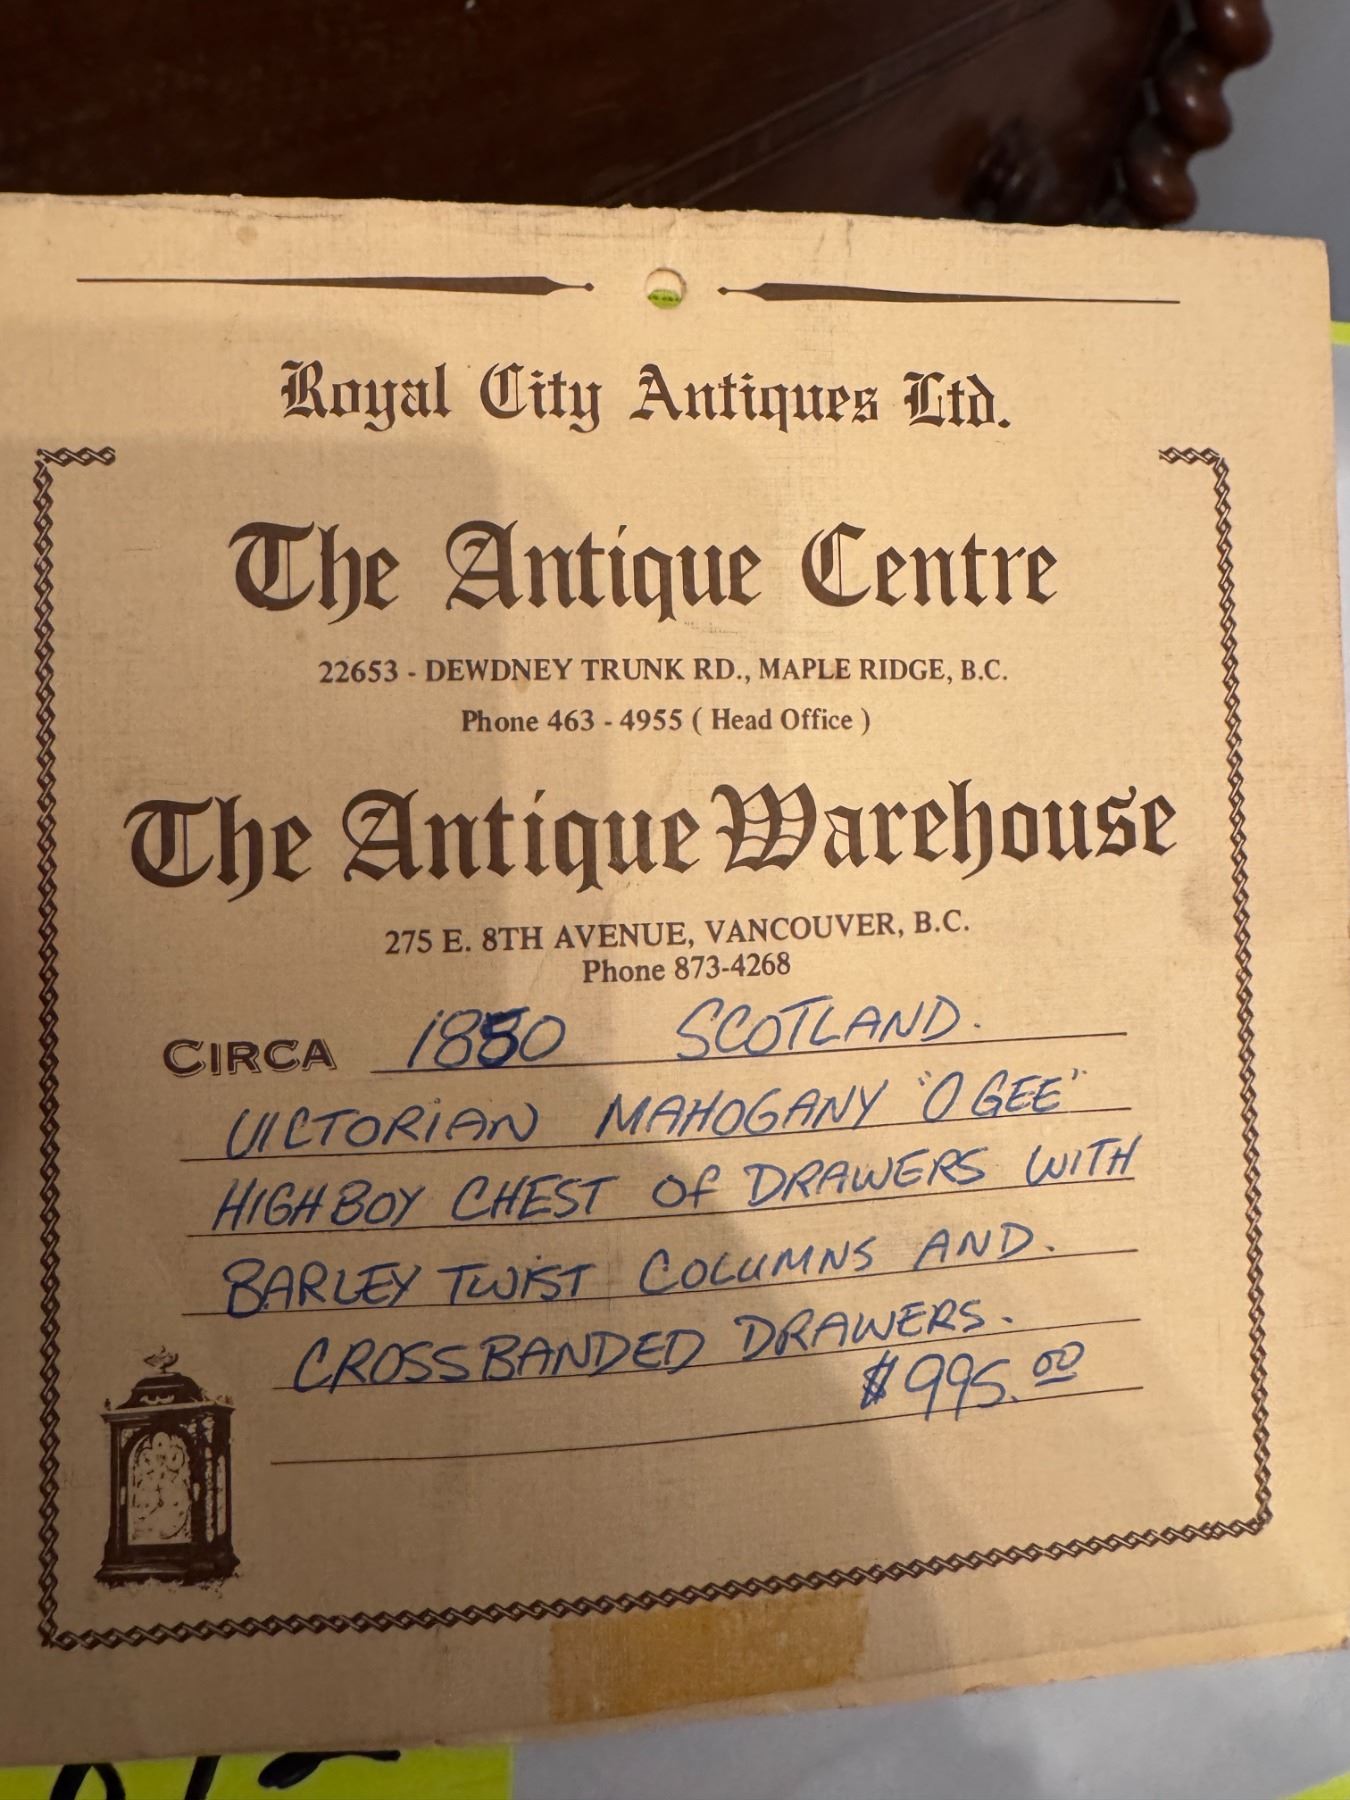 Royal City Antiques Ltd.
The Antique Centre
22653 - DEWDNEY TRUNK RD., MAPLE RIDGE, B.C.
Phone 463 - 4955 ( Head Office )
The Antique Warehouse
275 E. 8TH AVENUE, VANCOUVER, B.C.
Phone 873-4268
CIRCA 1850 SCOTLAND.
VICTORIAN MAHOGANY "O GEE"
HIGHBOY CHEST OF DRAWERS WITH
BARLEY TWIST COLUMNS AND.
CROSSBANDED DRAWERS.
$995.00